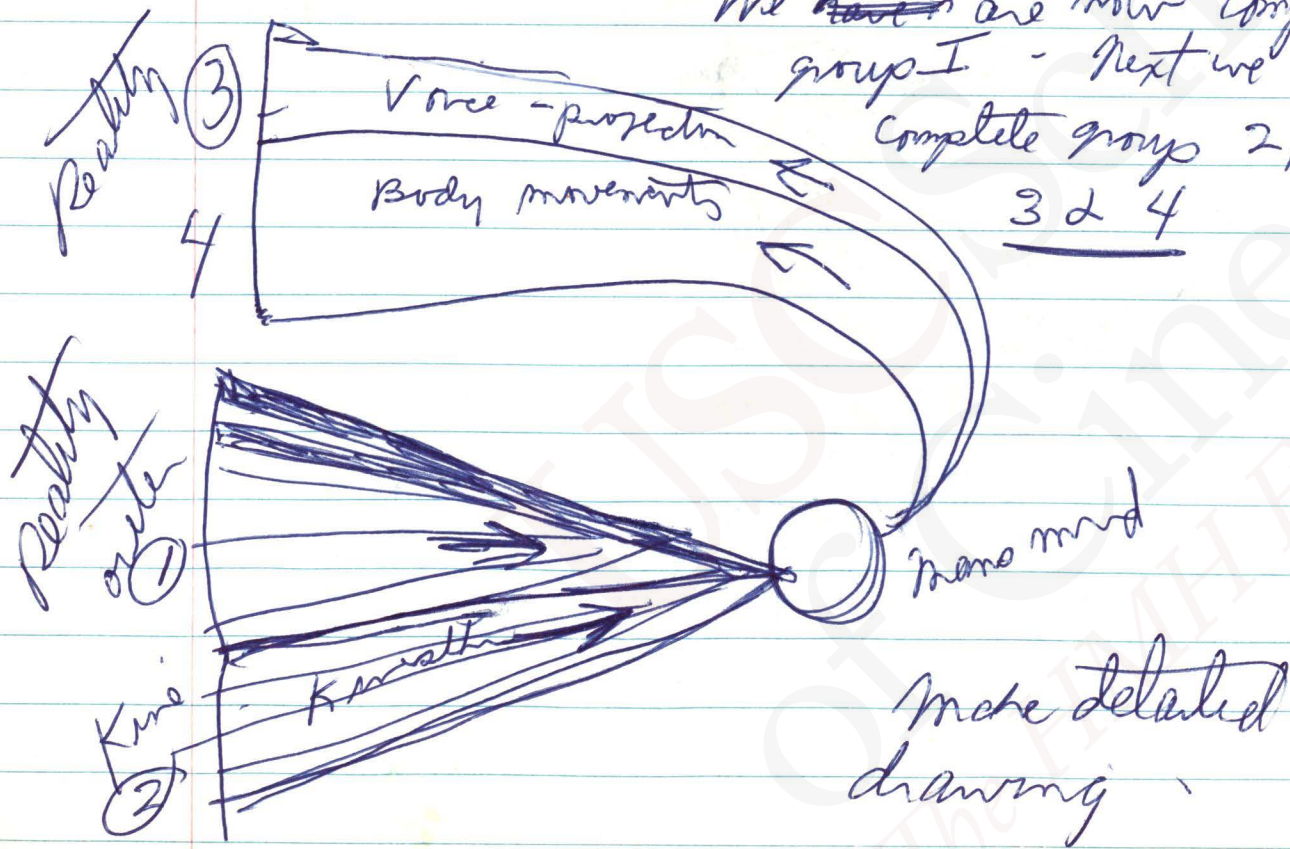 We are now comp
group I - Next we
Complete group 2,
3 & 4
Reality ③
Voice - projection
Body movements
4
Reality
①
Kine
②
Kinesth
Mans mind
More detailed
drawing